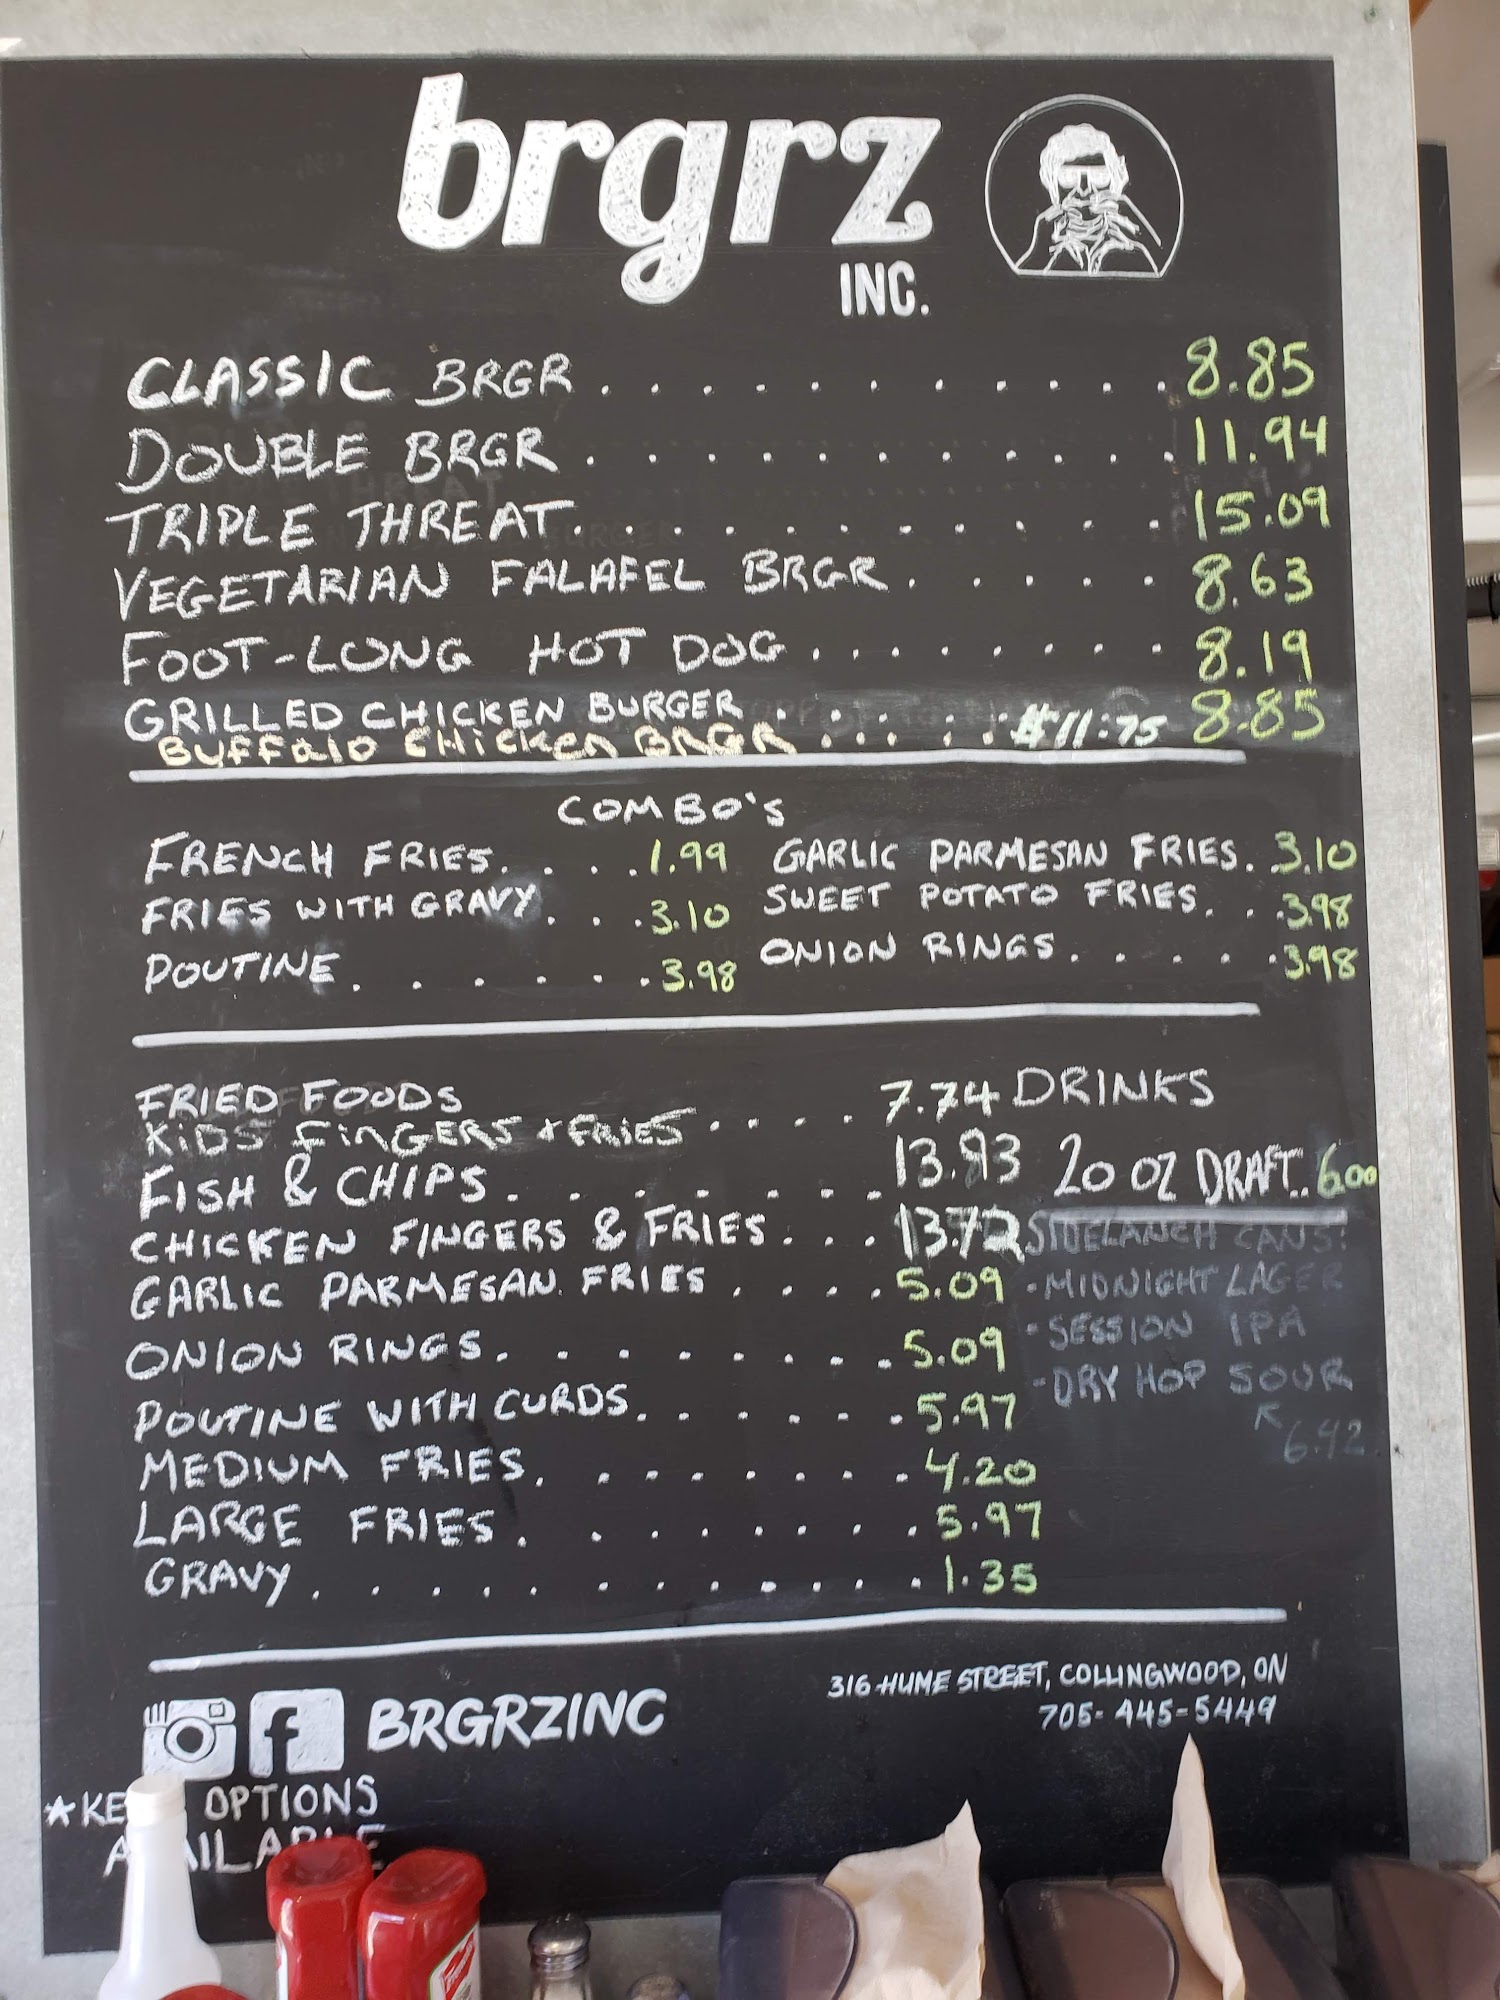 brgrz
INC.
CLASSIC BRGR . . . . . . . . . . . . 8.85
DOUBLE BRGR . . . . . . . . . . . . 11.94
TRIPLE THREAT . . . . . . . . . . . 15.09
VEGETARIAN FALAFEL BRGR . . . . . 8.63
FOOT-LONG HOT DOG . . . . . . . . 8.19
GRILLED CHICKEN BURGER . . . . . . 8.85
BUFFALO CHICKEN BRGR . . . . . $11.75
COMBO'S
FRENCH FRIES. . . . 1.99
FRIES WITH GRAVY. . . . 3.10
POUTINE . . . . . . . 3.98
GARLIC PARMESAN FRIES. 3.10
SWEET POTATO FRIES. . . 3.98
ONION RINGS . . . . . 3.98
FRIED FOODS
KIDS FINGERS + FRIES . . . . 7.74
FISH & CHIPS . . . . . . . . 13.93
CHICKEN FINGERS & FRIES . . . . 13.72
GARLIC PARMESAN FRIES . . . . 5.09
ONION RINGS . . . . . . . . . 5.09
POUTINE WITH CURDS. . . . . . . 5.97
MEDIUM FRIES. . . . . . . . 4.20
LARGE FRIES . . . . . . . . 5.97
GRAVY . . . . . . . . . . . . 1.35
DRINKS
20 OZ DRAFT.. 6.00
SIDELAUNCH CANS:
-MIDNIGHT LAGER
-SESSION IPA
-DRY HOP SOUR
6.42
BRGRZINC
316 HUME STREET, COLLINGWOOD, ON
705-445-5449
OPTIONS